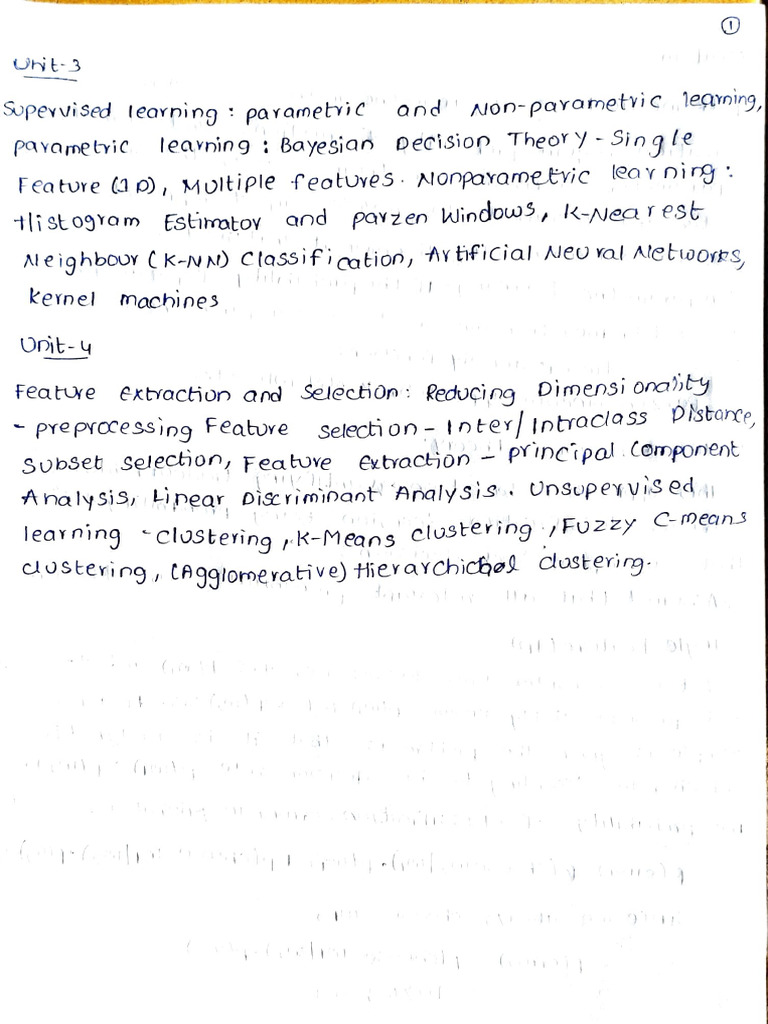 1
Unit-3
Supervised learning : parametric and Non-parametric learning,
parametric learning : Bayesian Decision Theory - Single
Feature (1D), Multiple features. Nonparametric learning :
Histogram Estimator and parzen Windows, K-Nearest
Neighbour (K-NN) Classification, Artificial Neural Networks,
kernel machines
Unit-4
Feature Extraction and Selection: Reducing Dimensionality
- preprocessing Feature selection - Inter/Intraclass Distance,
Subset selection, Feature Extraction - principal Component
Analysis, Linear Discriminant Analysis. Unsupervised
learning - clustering, K-Means clustering, Fuzzy C-means
clustering, (Agglomerative) Hierarchichal clustering.